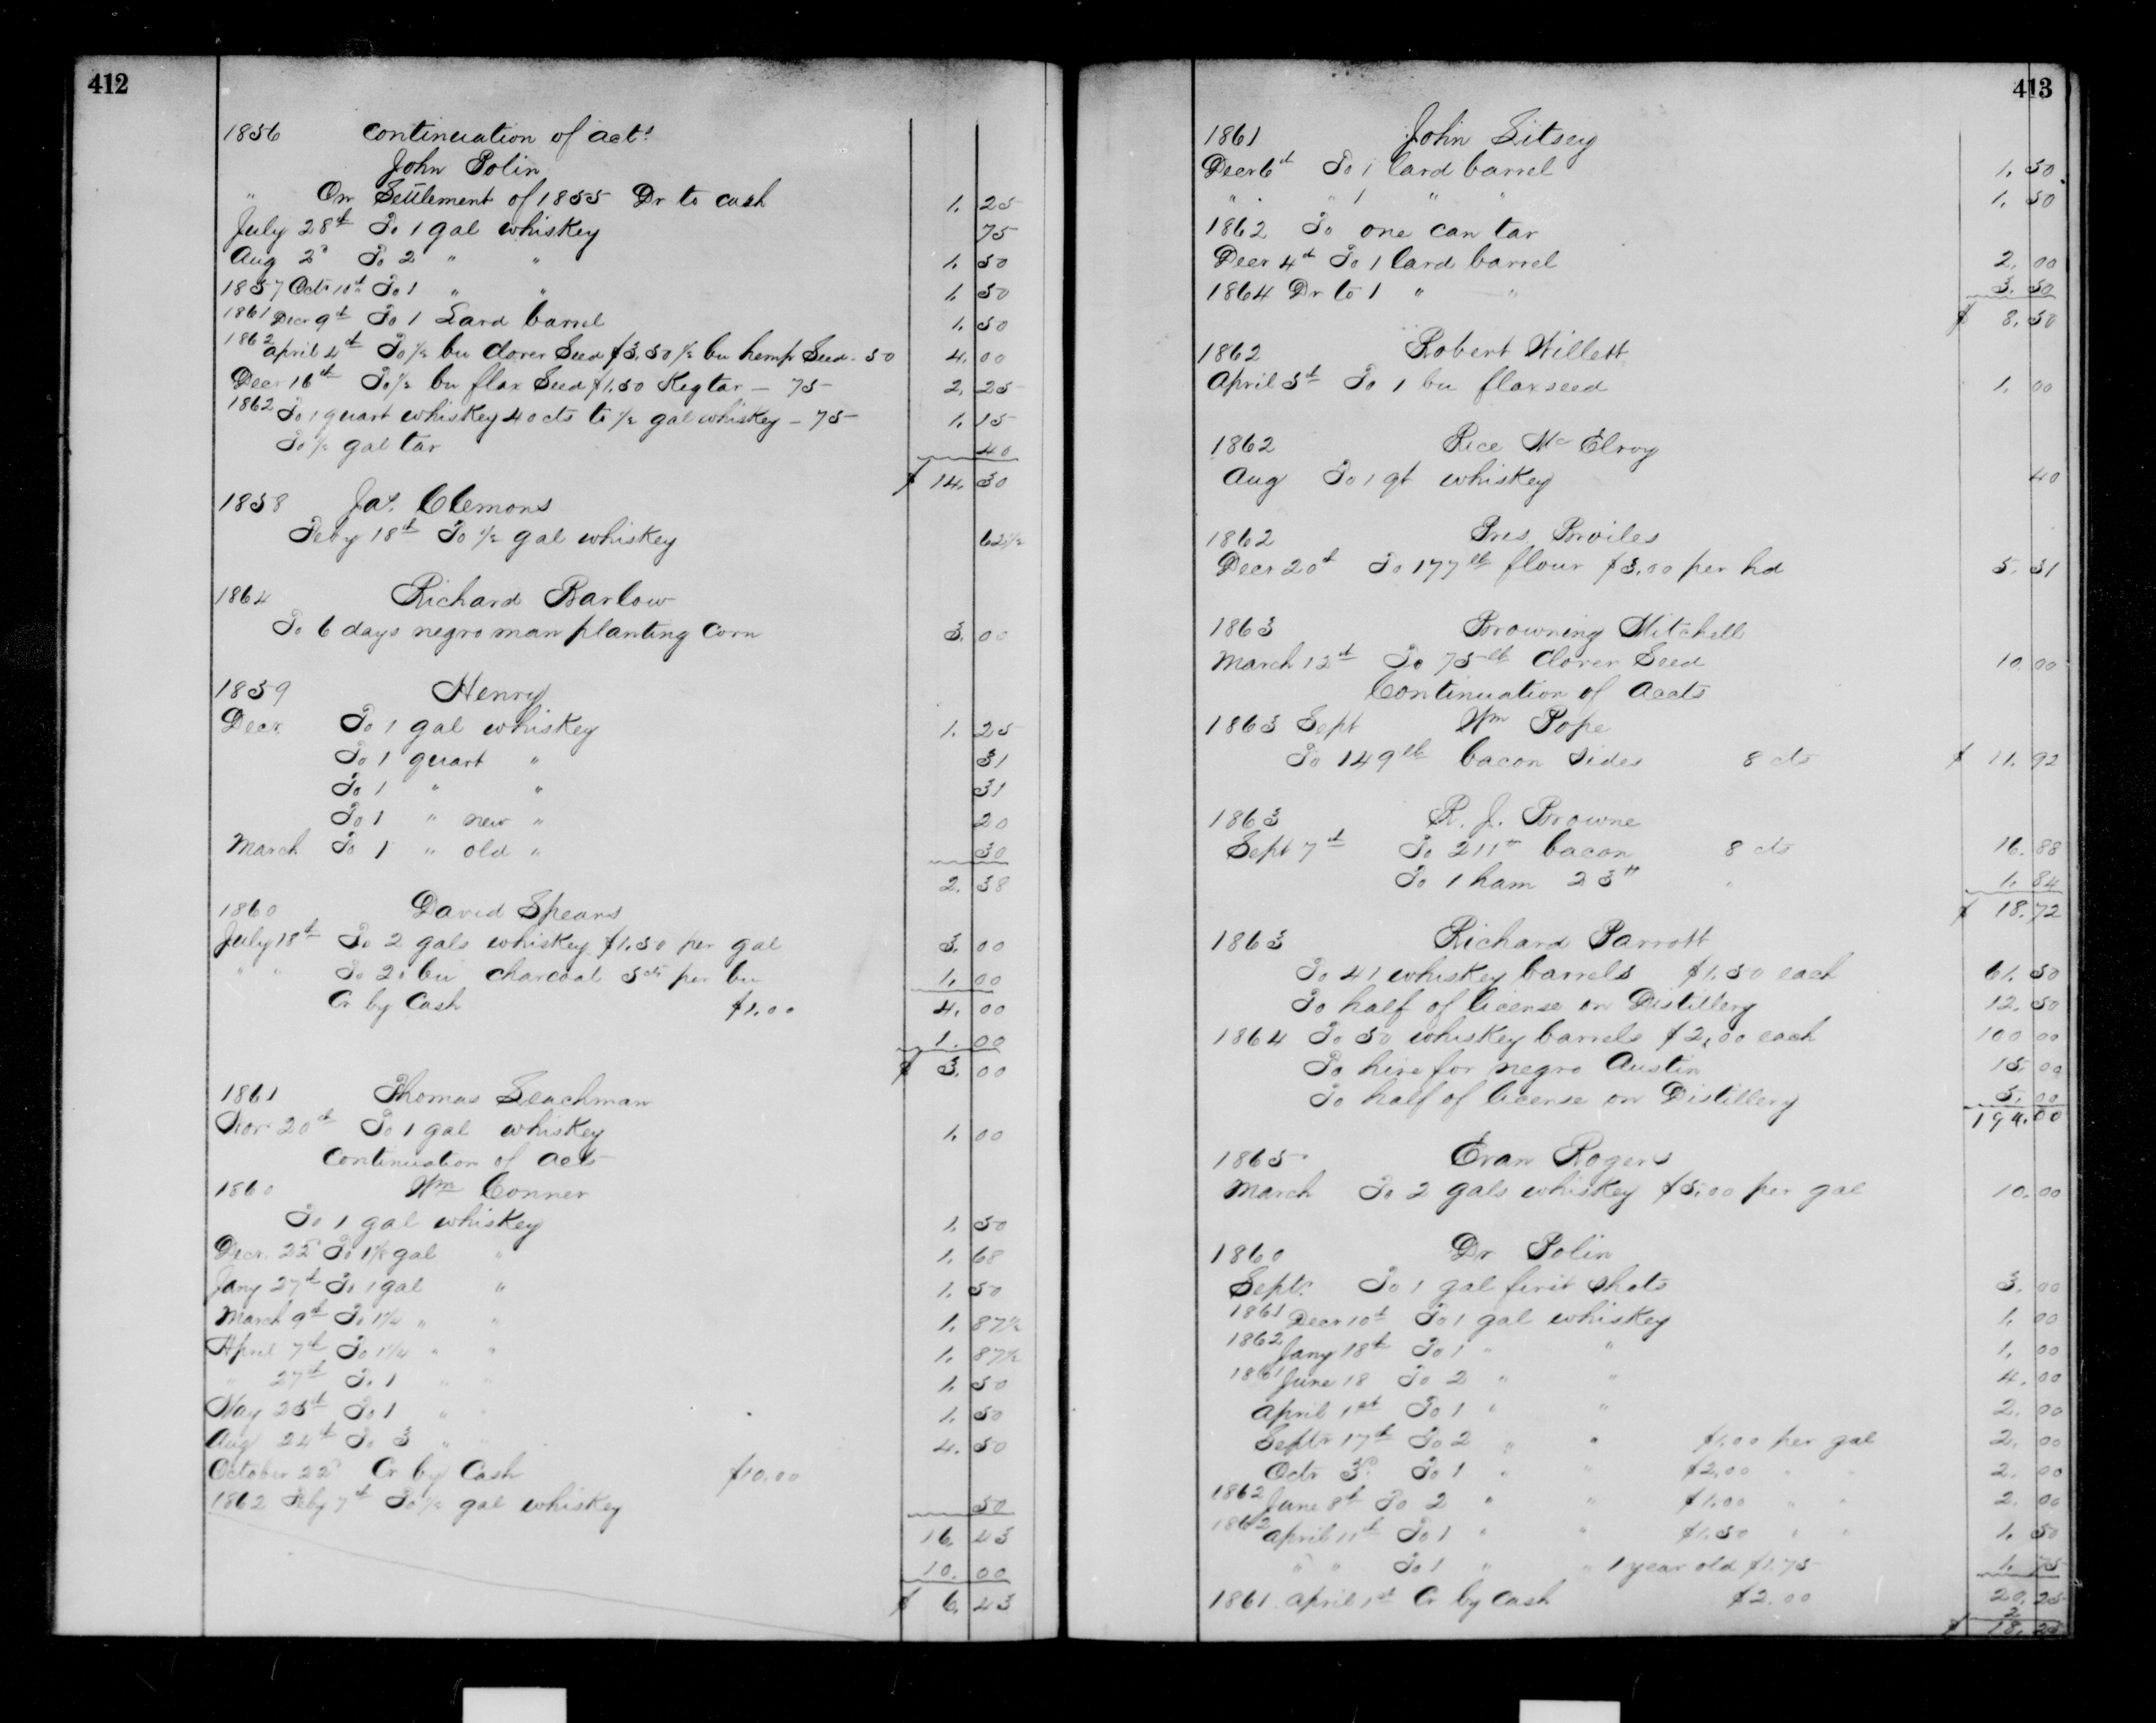 412
1856 Continuation of act.s
John Polin
" On Settlement of 1855 Dr to cash 1. 25
July 28th To 1 gal whiskey 75
Aug 2d To 2 " " 1. 50
1857 Octr 10th To 1 " " 1. 50
1861 Decr 9th To 1 Lard barrel 1. 50
1862 April 4th To ½ bu Clover Seed $3.50 ½ bu hemp Seed - 50 4. 00
Decr 16th To ½ bu flax Seed $1.50 Keg tar — 75 2. 25
1862 To 1 quart whiskey 40cts to ½ gal whiskey — 75 1. 15
To ½ gal tar 40
$ 14. 30
1858 Jas. Clemons
Feby 18th To ½ gal whiskey 62½
1864 Richard Barlow
To 6 days negro man planting Corn 3. 00
1859 Henry
Decr. To 1 gal whiskey 1. 25
To 1 quart " 31
To 1 " " 31
To 1 " new " 20
March To 1 " old " 30
2. 38
1860 David Spears
July 18th To 2 gals whiskey $1.50 per gal 3. 00
" " To 20 bu charcoal 5cts per bu 1. 00
Cr by Cash $1.00 4. 00
1. 00
$ 3. 00
1861 Thomas Leachman
Nov 20th To 1 gal whiskey 1. 00
Continuation of Acts
1860 Wm Conner
To 1 gal whiskey 1. 50
Decr. 22d To 1⅛ gal " 1. 68
Jany 27th To 1 gal " 1. 50
March 9th To 1¼ " " 1. 87½
April 7th To 1¼ " " 1. 87½
" 27th To 1 " " 1. 50
May 25th To 1 " " 1. 50
Aug 24th To 3 " " 4. 50
October 22d Cr by Cash $10.00
1862 Feby 7th To ½ gal whiskey 50
16. 43
10. 00
$ 6. 43
413
1861 John Litsey
Decr 6th To 1 lard barrel 1. 50
" " 1 " " 1. 50
1862 To one can tar
Decr 4th To 1 lard barrel 2. 00
1864 Dr to 1 " " 3. 50
$ 8. 50
1862 Robert Willett
April 5th To 1 bu flaxseed 1. 00
1862 Rice McElroy
Aug To 1 qt whiskey 40
1862 Pres. Broiles
Decr 20th To 177lb flour $3.00 per hd 5. 31
1863 Browning Mitchell
March 12th To 75lb Clover Seed 10. 00
Continuation of Accts
1863 Sept Wm Pope
To 149lb bacon Sides 8 cts $ 11. 92
1863 R. J. Browne
Sept 7th To 211" bacon 8 cts 16. 88
To 1 ham 23" " 1. 84
$ 18. 72
1863 Richard Parrott
To 41 whiskey barrels $1.50 each 61. 50
To half of license on Distillery 12. 50
1864 To 50 whiskey barrels $2.00 each 100 00
To hire for negro Austin 15. 00
To half of license on Distillery 5. 00
194. 00
1865 Evan Rogers
March To 2 gals whiskey $5.00 per gal 10. 00
1860 Dr Polin
Septr. To 1 gal first shots 3. 00
1861 Decr 10th To 1 gal whiskey 1. 00
1862 Jany 18th To 1 " " 1. 00
1861 June 18 To 2 " " 4. 00
April 1st To 1 " " 2. 00
Septr 17th To 2 " " $1.00 per gal 2. 00
Octr 3d To 1 " " $2.00 " " 2. 00
1862 June 8th To 2 " " $1.00 " " 2. 00
1862 April 11th To 1 " " $1.50 " " 1. 50
" " To 1 " " 1 year old $1.75 1. 75
1861 April 1st Cr by Cash $2.00 20. 25
2
$ 18. 25